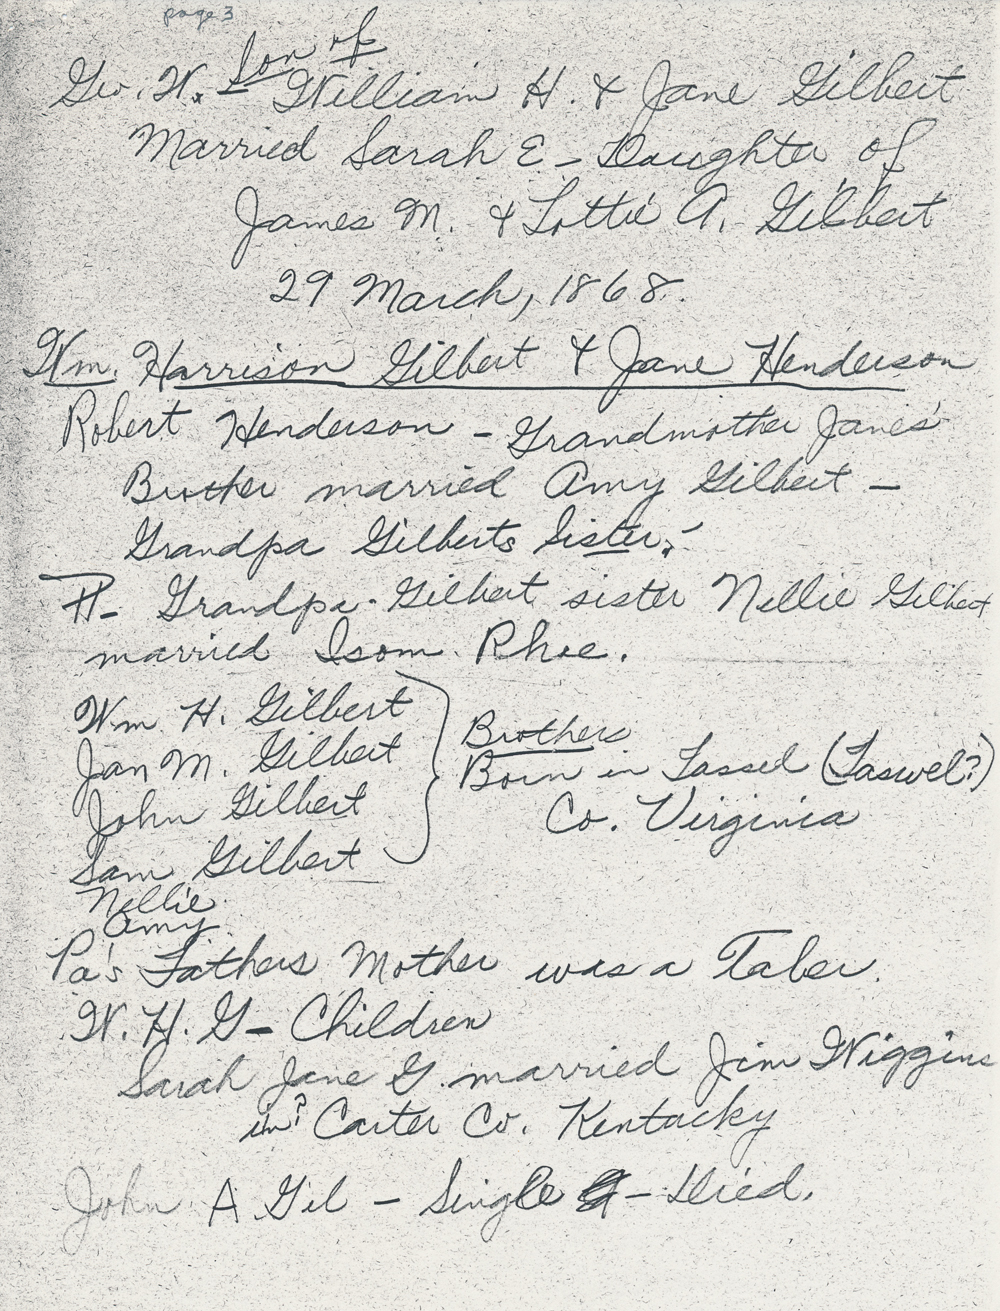 page 3
Geo. W. Son of William H. & Jane Gilbert
Married Sarah E - Daughter of
James M. & Lottie A. Gilbert
29 March, 1868.
Wm. Harrison Gilbert & Jane Henderson
Robert Henderson - Grandmother Janes'
Brother married Amy Gilbert -
Grandpa Gilberts Sister.
Grandpa Gilbert sister Nellie Gilbert
married Isom Rhee.
Wm H. Gilbert
Jan M. Gilbert
John Gilbert
Sam Gilbert
Nellie
Amy
Brothers
Born in Tassel (Taswel?)
Co. Virginia
Pa's Fathers Mother was a Taber.
W. H. G - Children
Sarah Jane G. married Jim Wiggins
in? Carter Co. Kentucky
John A Gil - Single - Died.